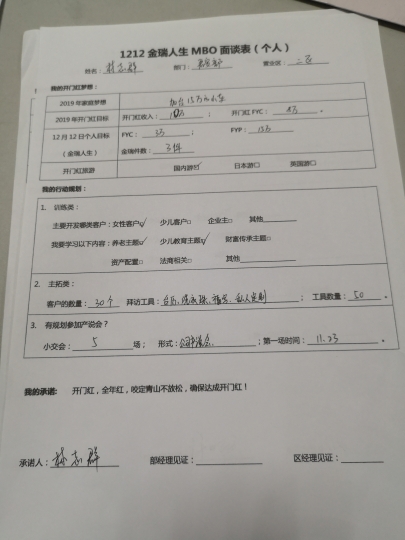 1212 金瑞人生 MBO 面谈表（个人）
姓名： 部门： 营业区：二区
我的开门红梦想：
2019 年家庭梦想
2019 年开门红目标 开门红收入： ； 开门红 FYC：
12 月 12 日个人目标 FYC： ； FYP：
（金瑞人生） 金瑞件数：3件
开门红旅游 国内游☑ 日本游□ 英国游□
我的行动规划：
1. 训练类：
主要开发哪类客户：女性客户☑ 少儿客户□ 企业主□ 其他
我要学习以下内容：养老主题☑ 少儿教育主题☑ 财富传承主题□
资产配置□ 法商相关□ 其他
2. 主拓类：
客户的数量：30个 拜访工具： ；工具数量：50 。
3. 有规划参加产说会？
小交会：5 场； 形式： ；第一场时间：11.23 。
我的承诺： 开门红，全年红，咬定青山不放松，确保达成开门红！
承诺人： 部经理见证： 区经理见证：